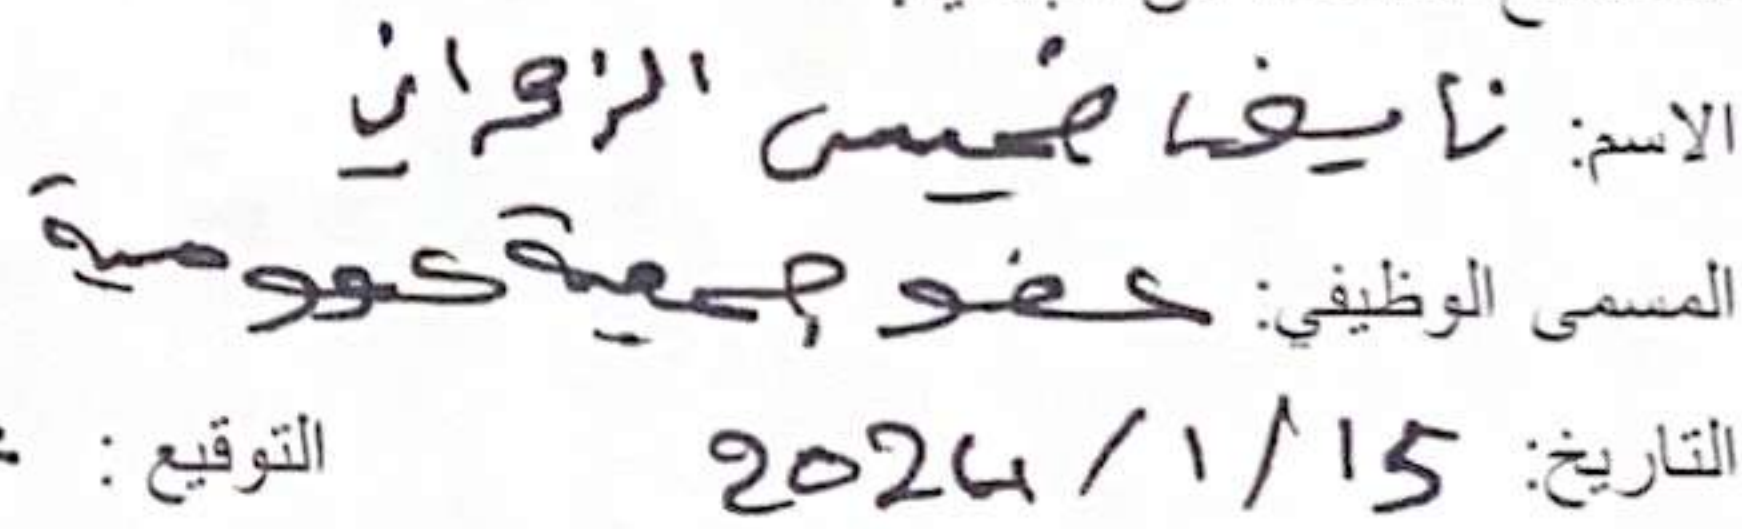 الاسم: نايف خميس الزهراني
المسمى الوظيفي: عضو جمعية عمومية
التاريخ: 15/1/2024 التوقيع: